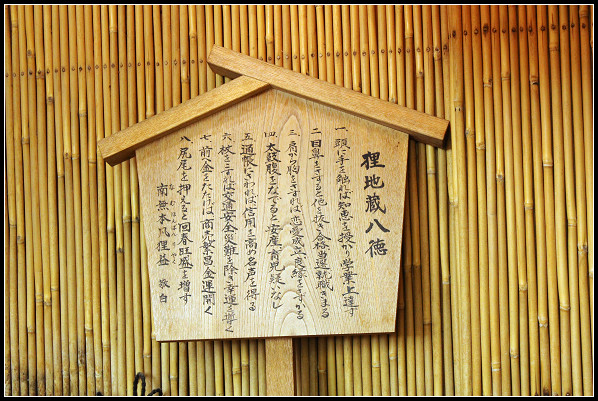 狸地蔵八徳
一、頭に手を触れば知恵を授かり学業上達す
二、目鼻をさすると他を抜き合格当選就職きまる
三、肩から胸をさすれば、恋愛成立良縁をさずかる
四、太鼓腹をなでると安産、育児疑いなし
五、通帳にさわれば、信用を高め名声を得る
六、杖をこすれば交通安全災難を除き幸運を導く
七、前八金をたたけば、商売繁昌金運開く
八、尻尾を押えると回春旺盛を増す
南無本風狸益 敬白